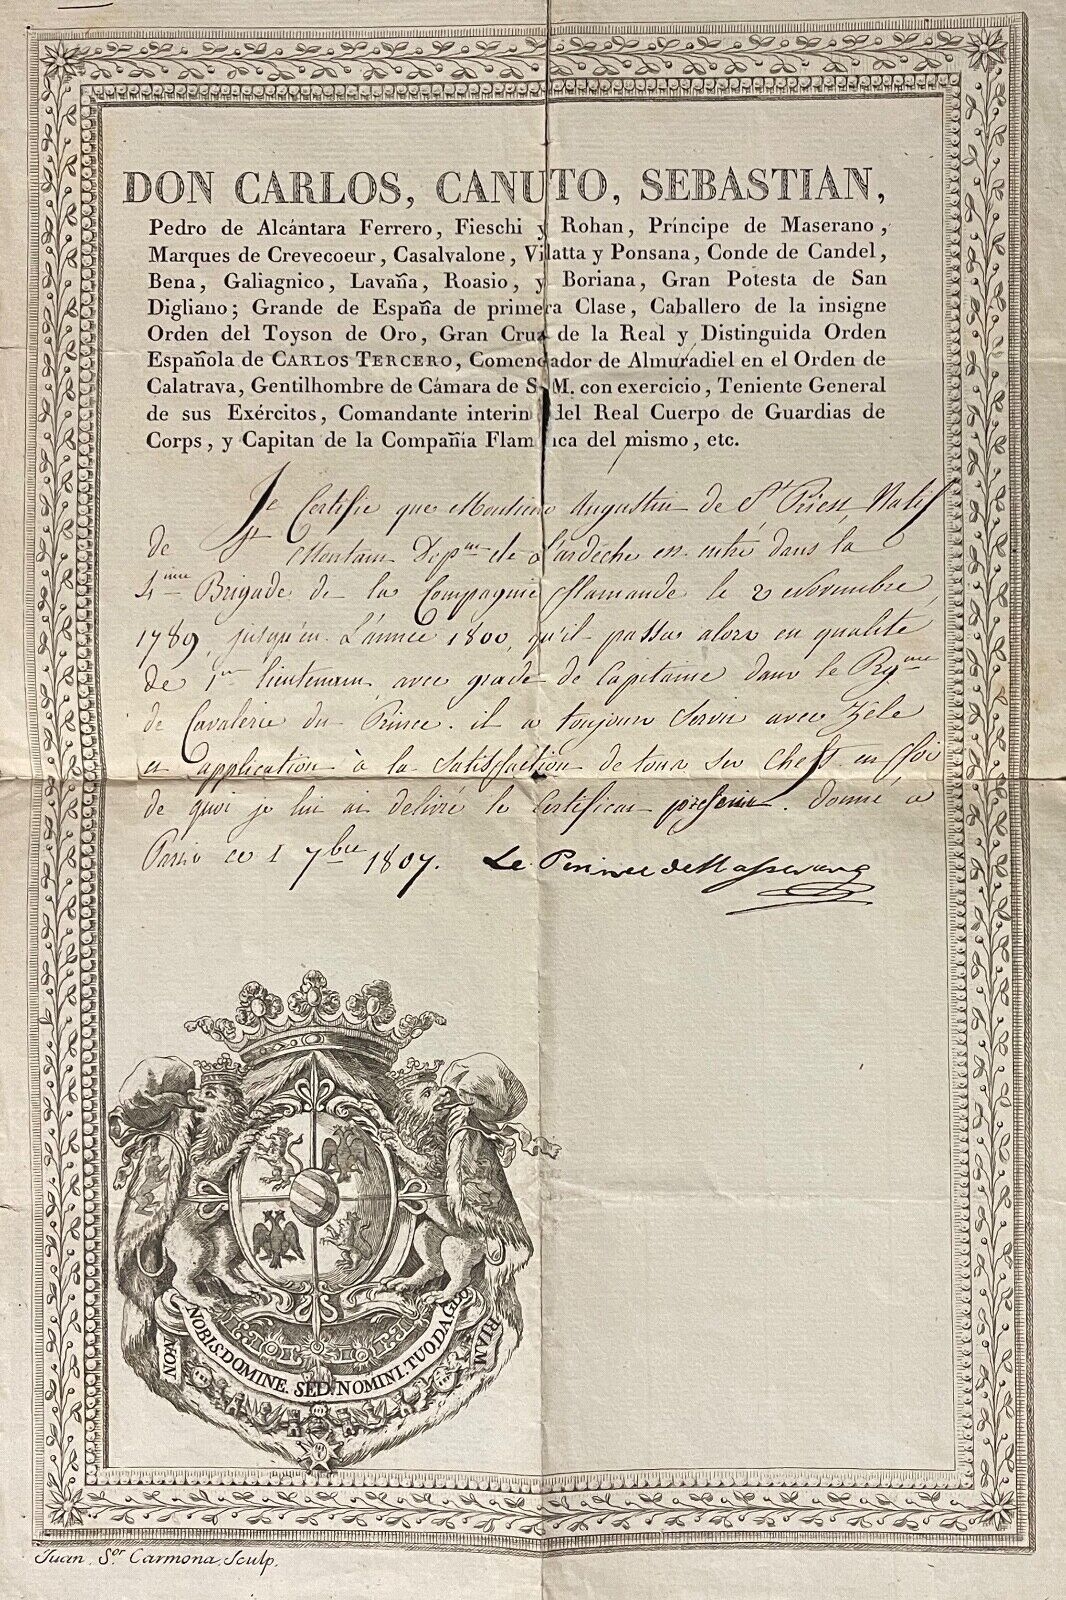 DON CARLOS, CANUTO, SEBASTIAN,
Pedro de Alcántara Ferrero, Fieschi y Rohan, Príncipe de Maserano,
Marques de Crevecoeur, Casalvalone, Vilatta y Ponsana, Conde de Candel,
Bena, Galiagnico, Lavaña, Roasio, y Boriana, Gran Potesta de San
Digliano; Grande de España de primera Clase, Caballero de la insigne
Orden del Toyson de Oro, Gran Cruz de la Real y Distinguida Orden
Española de CARLOS TERCERO, Comendador de Almuradiel en el Orden de
Calatrava, Gentilhombre de Cámara de S. M. con exercicio, Teniente General
de sus Exércitos, Comandante interino del Real Cuerpo de Guardias de
Corps, y Capitan de la Compañía Flamenca del mismo, etc.
Je Certifie que Monsieur Augustin de St. Priest, Natif
de St Montant Depm de L'ardèche est entré dans la
4me Brigade de la Compagnie flamande le 2 Novembre
1789, jusqu'en L'année 1800, qu'il passa alors en qualité
de 1er lieutenant avec grade de Capitaine dans le Rgme
de Cavalerie du Prince. il a toujours Servi avec Zèle
et application à la Satisfaction de tous ses Chefs en foi
de quoi je lui ai délivré le Certificat présent. Donné à
Paris ce 1 7bre 1807. Le Prince de Masserano
NON NOBIS. DOMINE. SED. NOMINI. TUO. DA GLORIAM
Juan, Sor Carmona, Sculp.